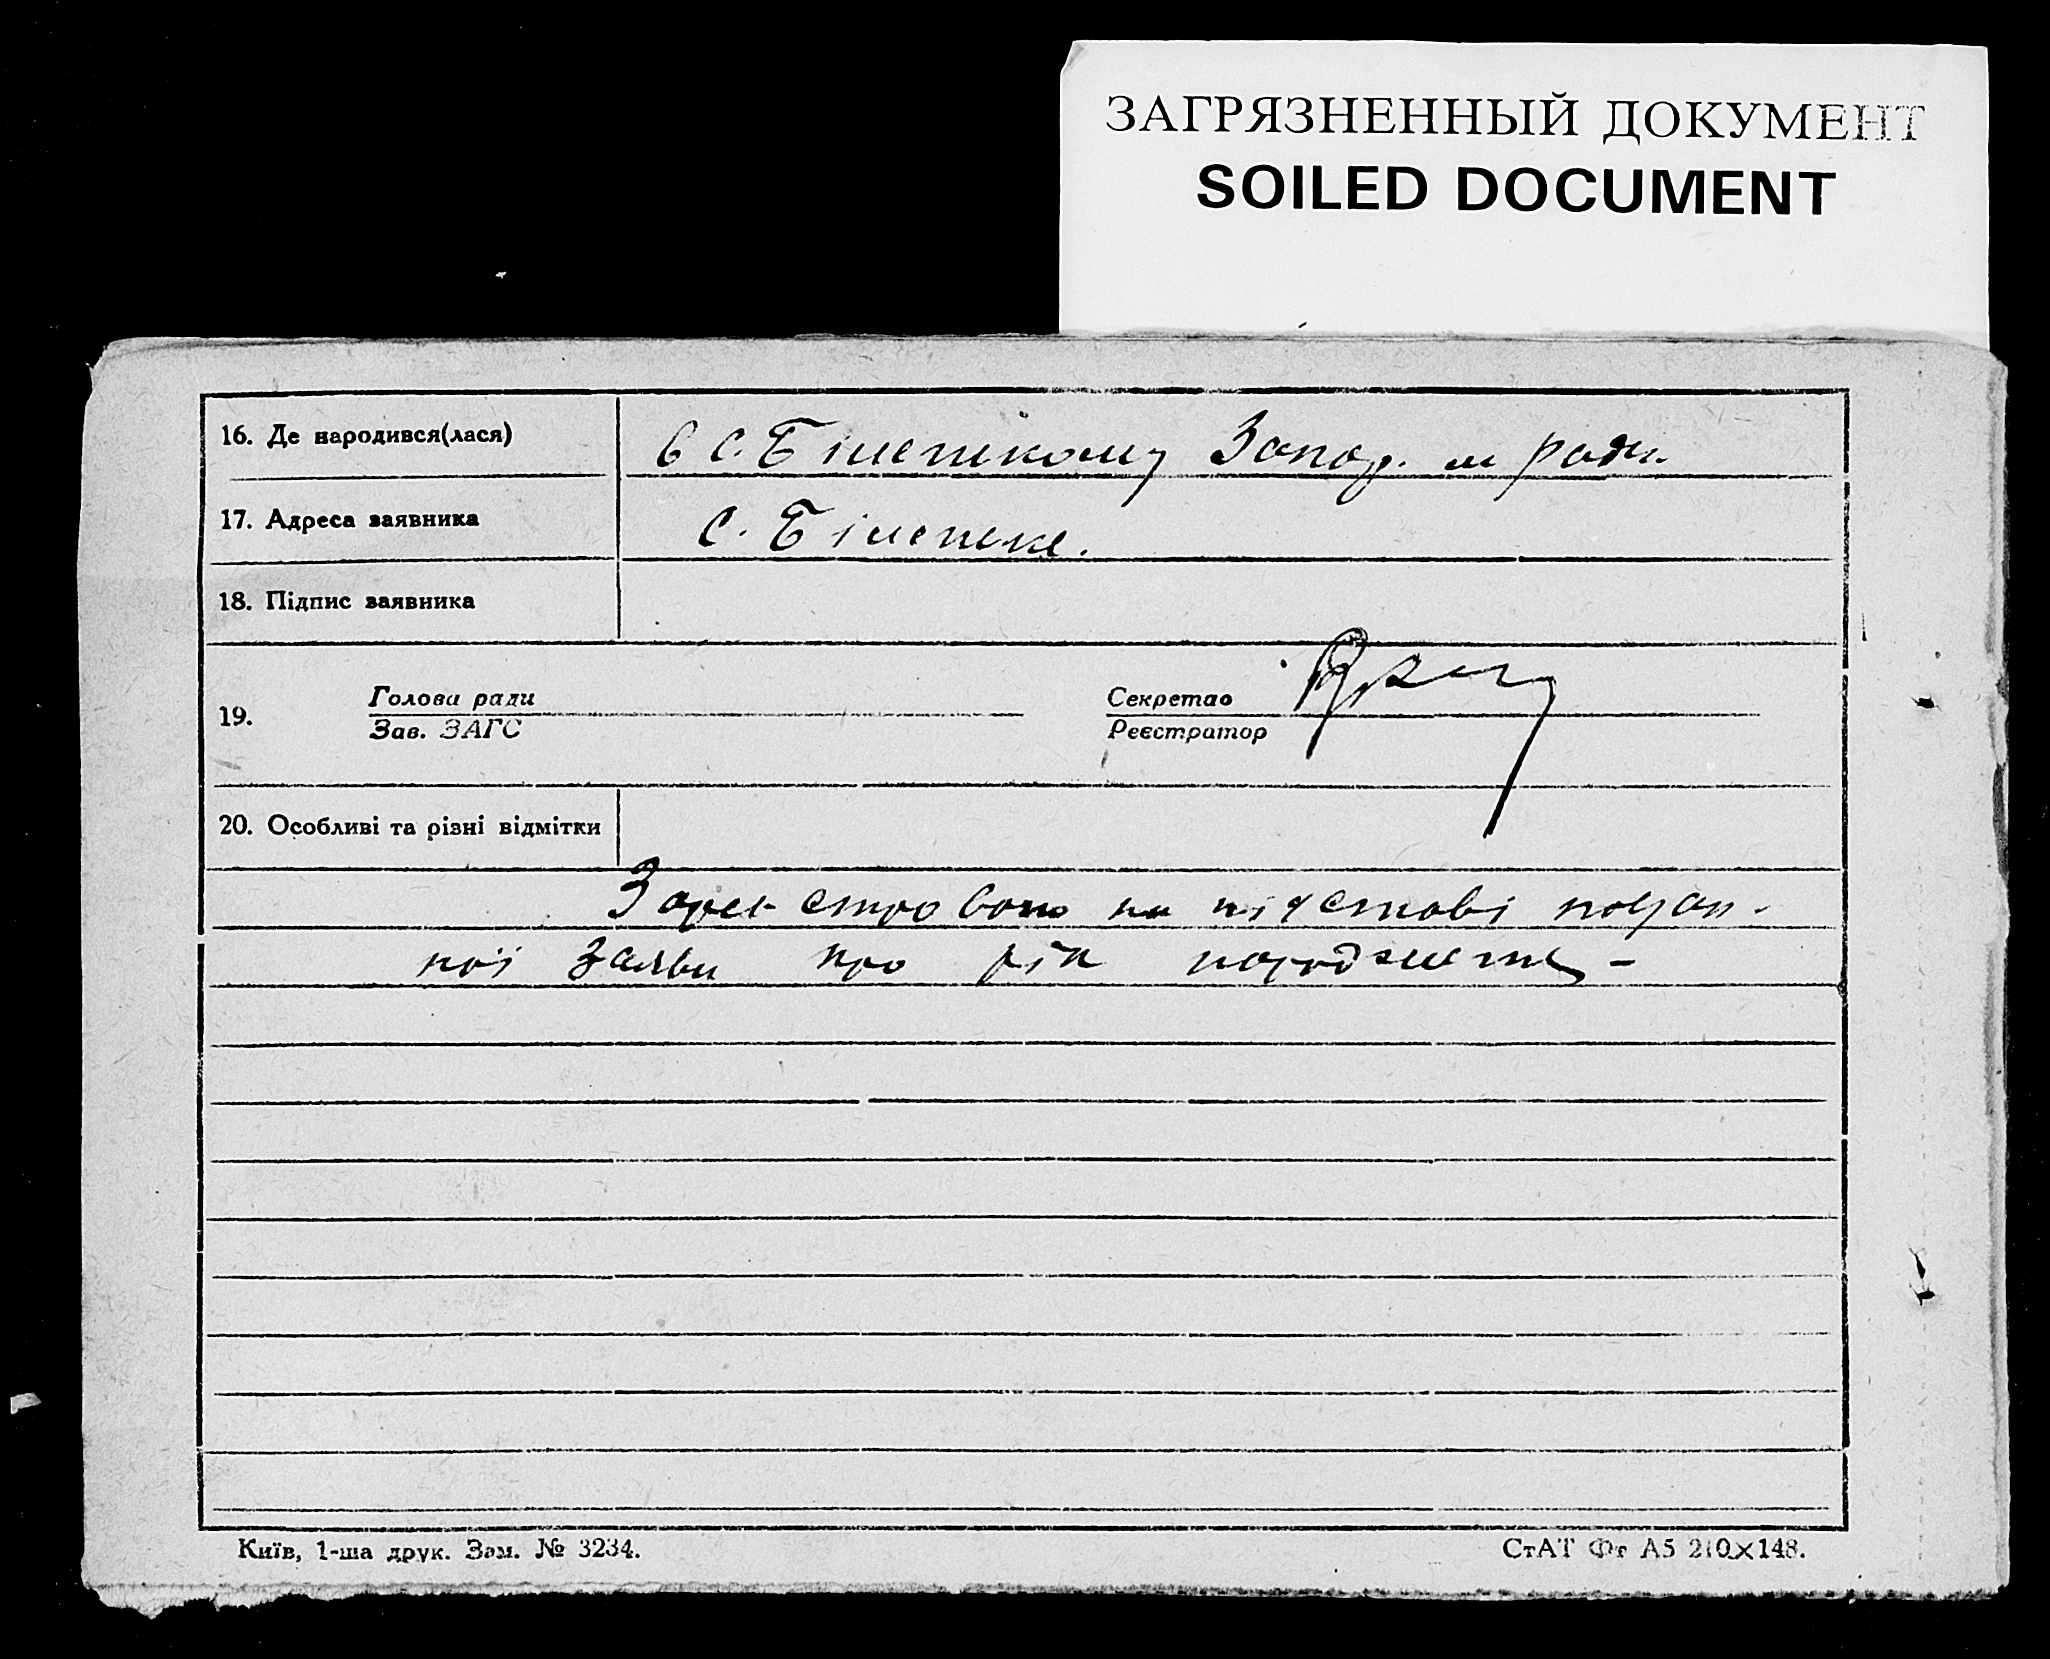 ЗАГРЯЗНЕННЫЙ ДОКУМЕНТ
SOILED DOCUMENT
16. Де народився(лася)
в с. Біленькому Запор. м ради
17. Адреса заявника
с. Біленьке.
18. Підпис заявника
19. Голова ради Секретар
Зав. ЗАГС Реєстратор
20. Особливі та різні відмітки
Зареєстровано на підставі подан-
ної заяви про рік народження
Київ, 1-ша друк. Зам. № 3234.
СтАТ Фт А5 210×148.